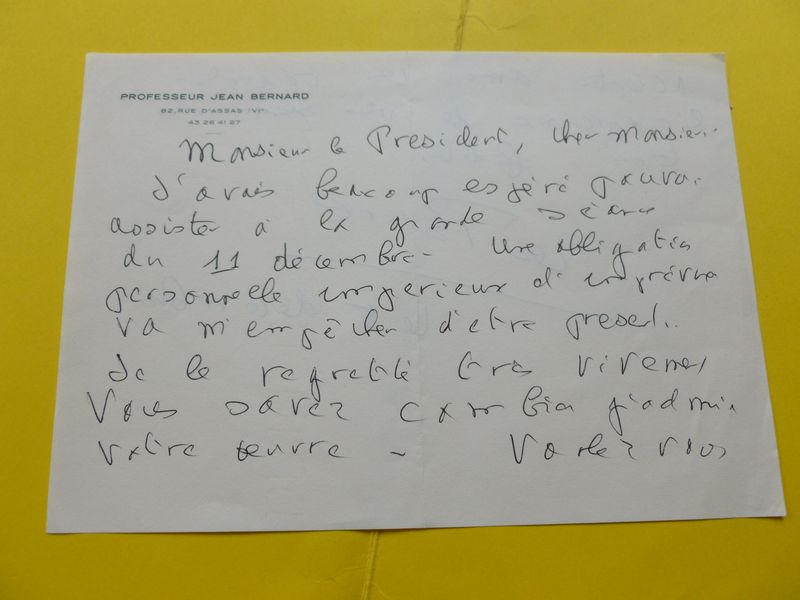 PROFESSEUR JEAN BERNARD
82, RUE D'ASSAS (VIe)
43 26 41 27
Monsieur le President, Cher Monsieur.
J'avais beaucoup espéré pouvoi
assister à la grande séance
du 11 décembre - Une obligation
personnelle imperieux et imprévue
va m'empêcher d'etre present.
Je le regrette très vivement
Vous savez combien j'admire
votre œuvre - Voulez vous